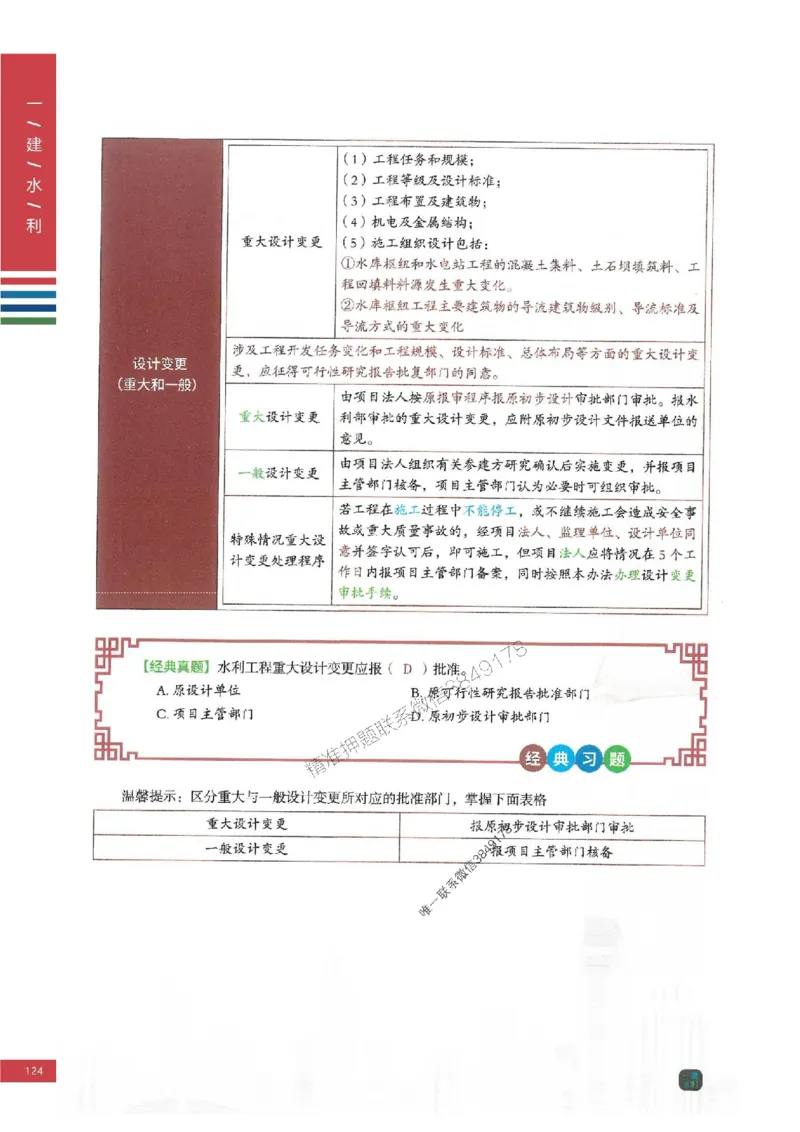 一/建/水/利
设计变更
（重大和一般）
重大设计变更
（1）工程任务和规模；
（2）工程等级及设计标准；
（3）工程布置及建筑物；
（4）机电及金属结构；
（5）施工组织设计包括：
①水库枢纽和水电站工程的混凝土集料、土石坝填筑料、工
程回填料料源发生重大变化。
②水库枢纽工程主要建筑物的导流建筑物级别、导流标准及
导流方式的重大变化
涉及工程开发任务变化和工程规模、设计标准、总体布局等方面的重大设计变
更，应征得可行性研究报告批复部门的同意。
重大设计变更
由项目法人按原报审程序报原初步设计审批部门审批。报水
利部审批的重大设计变更，应附原初步设计文件报送单位的
意见。
一般设计变更
由项目法人组织有关参建方研究确认后实施变更，并报项目
主管部门核备，项目主管部门认为必要时可组织审批。
特殊情况重大设
计变更处理程序
若工程在施工过程中不能停工，或不继续施工会造成安全事
故或重大质量事故的，经项目法人、监理单位、设计单位同
意并签字认可后，即可施工，但项目法人应将情况在5个工
作日内报项目主管部门备案，同时按照本办法办理设计变更
审批手续。
【经典真题】水利工程重大设计变更应报（ D ）批准。
A. 原设计单位
B. 原可行性研究报告批准部门
C. 项目主管部门
D. 原初步设计审批部门
精准押题联系微信3849178
经典习题
温馨提示：区分重大与一般设计变更所对应的批准部门，掌握下面表格
重大设计变更
报原初步设计审批部门审批
一般设计变更
报项目主管部门核备
唯一联系微信3849178
124